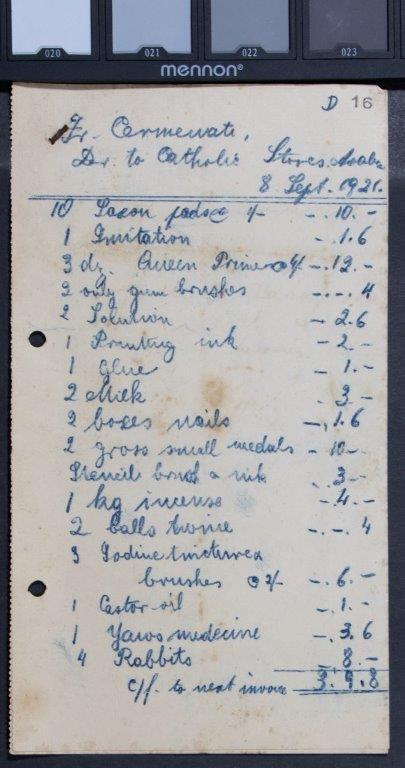 020 021 022 023
mennon®
D 16
Fr. Cermenati,
Dr. to Catholic Stores,
8 Sept. 1921.
10 Saxon pads @ 1/- -. 10. -
1 Imitation -. 1. 6
3 dz. Queen Primer @ 4/- -. 12. -
2 only gum brushes -. -. 4
2 Solution - 2. 6
1 Printing ink - 2. -
1 Glue - 1. -
2 Milk . 3 -
2 boxes nails -, 1. 6
2 gross small medals - 10 -
Stencil brush & ink . 3 -
1 kg incense -. 4. -
2 balls twine -. -. 4
3 Iodine tincture &
brushes @ 2/- -. 6. -
1 Castor oil -. 1. -
1 Yaws medecine -. 3. 6
4 Rabbits 8. -
c/f. to next invoice 3. 9. 8